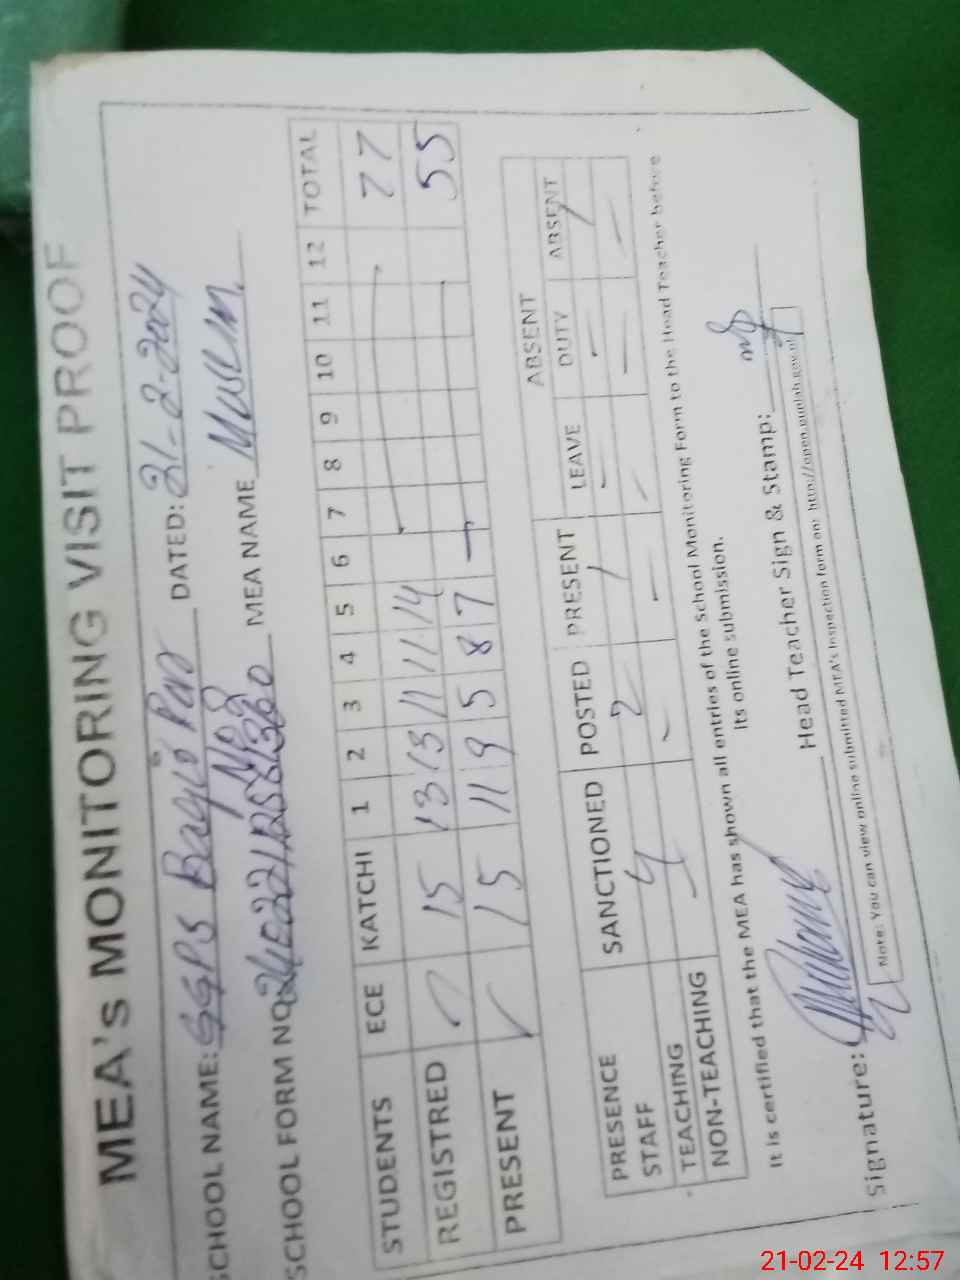 MEA's MONITORING VISIT PROOF
SCHOOL NAME: GGPS DATED: 21-2-2024
No 9
SCHOOL FORM NO. MEA NAME
STUDENTS ECE KATCHI 1 2 3 4 5 6 7 8 9 10 11 12 TOTAL
REGISTRED 15 13 13 11 11 14 77
PRESENT 15 11 9 5 8 7 55
PRESENCE SANCTIONED POSTED PRESENT ABSENT
STAFF LEAVE DUTY ABSENT
TEACHING 4 2 1
NON-TEACHING
It is certified that the MEA has shown all entries of the School Monitoring Form to the Head Teacher before
its online submission.
Signature: Head Teacher Sign & Stamp:
Note: You can view online submitted MEA's Inspection form on: http://open.punjab.gov.pk
21-02-24 12:57